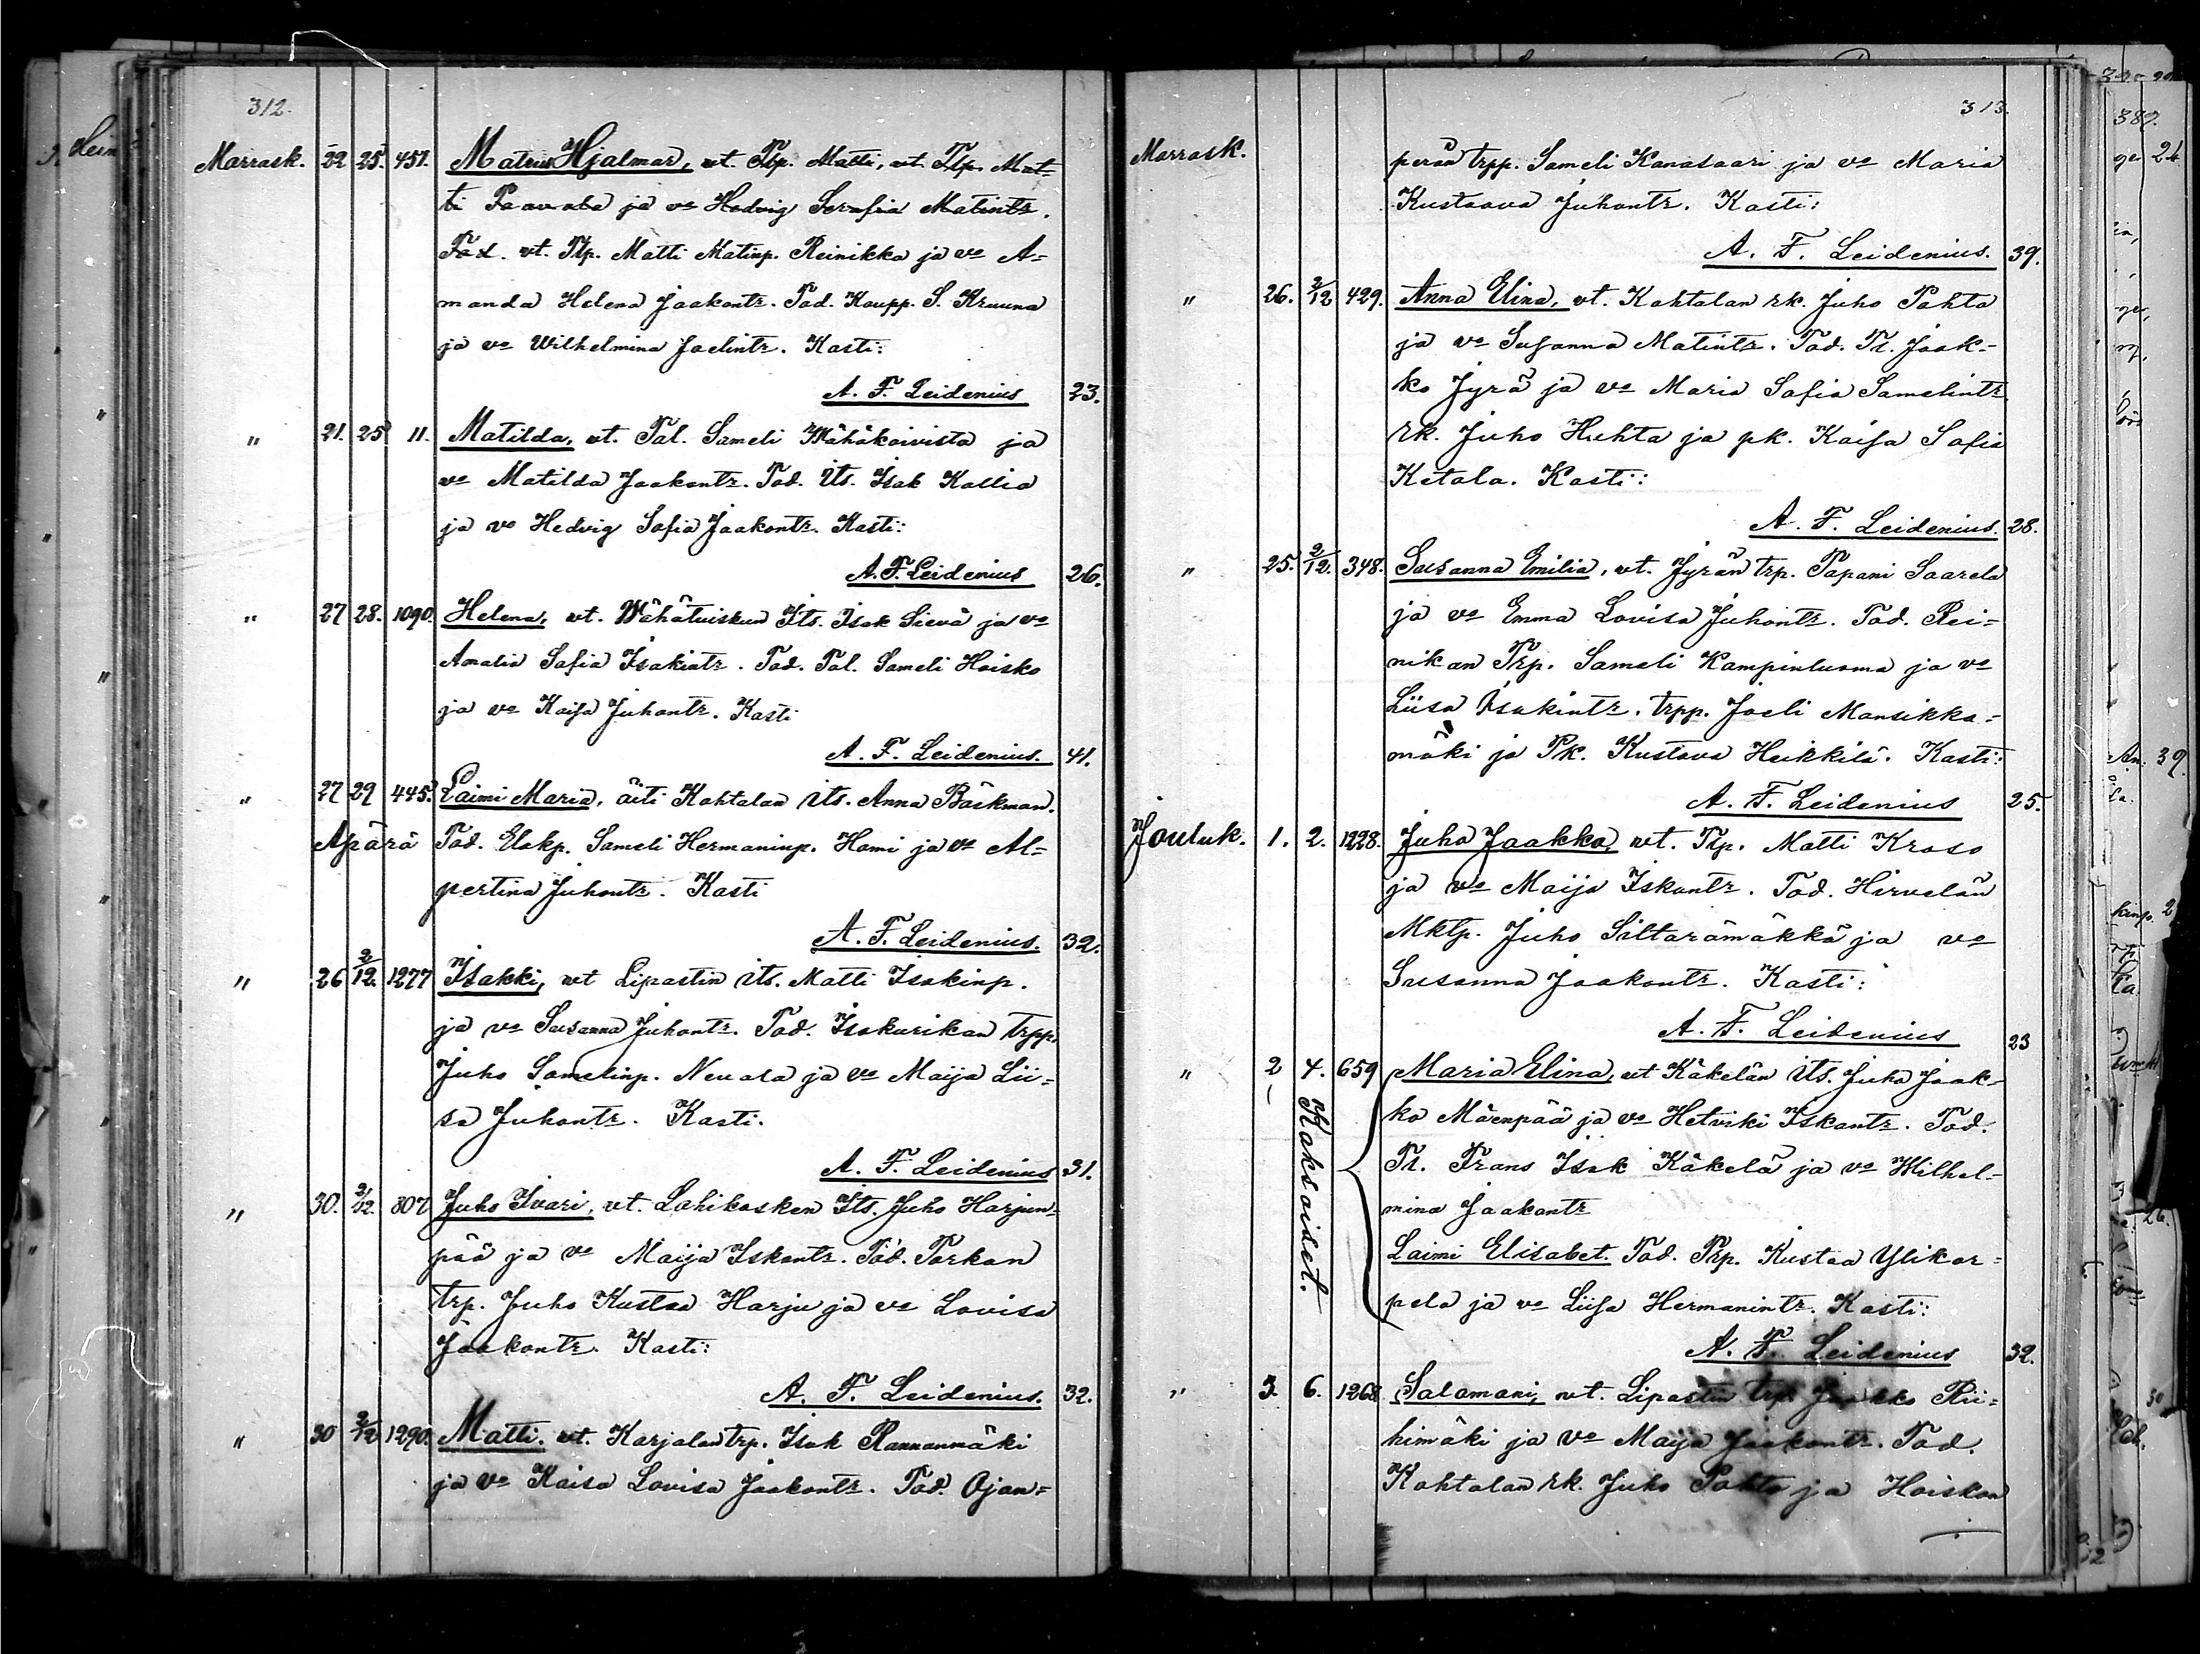 312.
Marrask. 22 25. 457. Mateus Hjalmar, vt. Tlp. Matti, vt. Tlp. Mat-
ti Paavola ja vo Hedvig Serafia Matintr.
Tod. vt. Tlp. Matti Matinp. Reinikka ja vo A-
manda Helena Jaakontr. Tod. Kaupp. S. Kruuna
ja vo Wilhelmina Joelintr. Kasti:
A. F. Leidenius 23.
" 21. 25 11. Matilda, vt. Tal. Sameli Wähäkoivisto ja
vo Matilda Jaakontr. Tod. Its. Isak Kallio
ja vo Hedvig Sofia Jaakontr. Kasti:
A. F. Leidenius 26.
" 27 28. 1090. Helena, vt. Wähätuiskun Its. Isak Sievä ja vo
Amalia Sofia Isakintr. Tod. Tal. Sameli Hoisko
ja vo Kaisa Juhontr. Kasti
A. F. Leidenius. 41.
" 27 29 445. Laimi Maria, äiti Kohtalan Its. Anna Bäckman.
Äpärä Tod. Elokp. Sameli Hermaninp. Homi ja vo Al-
pertina Juhontr. Kasti
A. F. Leidenius. 32.
" 26 2/12. 1277 Isakki, vt Lipastin Its. Matti Isakinp.
ja vo Susanna Juhontr. Tod. Isokurikan trpp.
Juho Samelinp. Nevala ja vo Maija Lii-
sa Juhontr. Kasti.
A. F. Leidenius 31.
" 30. 2/12. 807 Juho Ivari, vt. Lahikosken Its. Juho Harjun-
pää ja vo Maija Iskantr. Tod. Porkan
trp. Juho Kustaa Harju ja vo Lovisa
Jaakontr. Kasti:
A. F. Leidenius. 32.
" 30 2/12 1290. Matti. vt. Karjalan trp. Isak Rannanmäki
ja vo Kaisa Lovisa Jaakontr. Tod. Ojan-
313.
Marrask. perän trpp. Sameli Kanasaari ja vo Maria
Kustaava Juhontr. Kasti:
A. F. Leidenius. 39.
" 26. 2/12 429. Anna Elina, vt. Kohtalan rk. Juho Pohto
ja vo Susanna Matintr. Tod. Tl. Jaak-
ko Jyrä ja vo Maria Sofia Samelintr
rk. Juho Huhta ja pk. Kaisa Sofia
Ketola. Kasti:
A. F. Leidenius. 28.
" 25. 2/12. 348. Susanna Emilia, vt. Jyrän trp. Tapani Saarela
ja vo Emma Lovisa Juhontr. Tod. Rei-
nikan Trp. Sameli Kampinluoma ja vo
Liisa Isakintr. trpp. Joeli Mansikka-
mäki ja Pk. Kustava Heikkilä. Kasti:
A. F. Leidenius 25.
Jouluk. 1. 2. 1228. Juho Jaakko, vt. Tlp. Matti Kraso
ja vo Maija Iskantr. Tod. Hirvelän
Mktp. Juho Siltarämäkkä ja vo
Susanna Jaakontr. Kasti:
A. F. Leidenius 23
" 2 4. 659 Maria Elina, vt Käkelän Its. Juho Jaak-
ko Mäenpää ja vo Hetviki Iskantr. Tod.
Tl. Frans Isak Käkelä ja vo Wilhel-
mina Jaakontr
Kaksoiset.
Laimi Elisabet. Tod. Trp. Kustaa Ylikor-
pela ja vo Liisa Hermanintr. Kasti:
A. F. Leidenius 32.
" 3. 6. 1268 Salamani, vt. Lipastin trp. Jaakko Rii-
himäki ja vo Maija Jaakontr. Tod.
Kohtalan rk. Juho Pohto ja Hoiskon